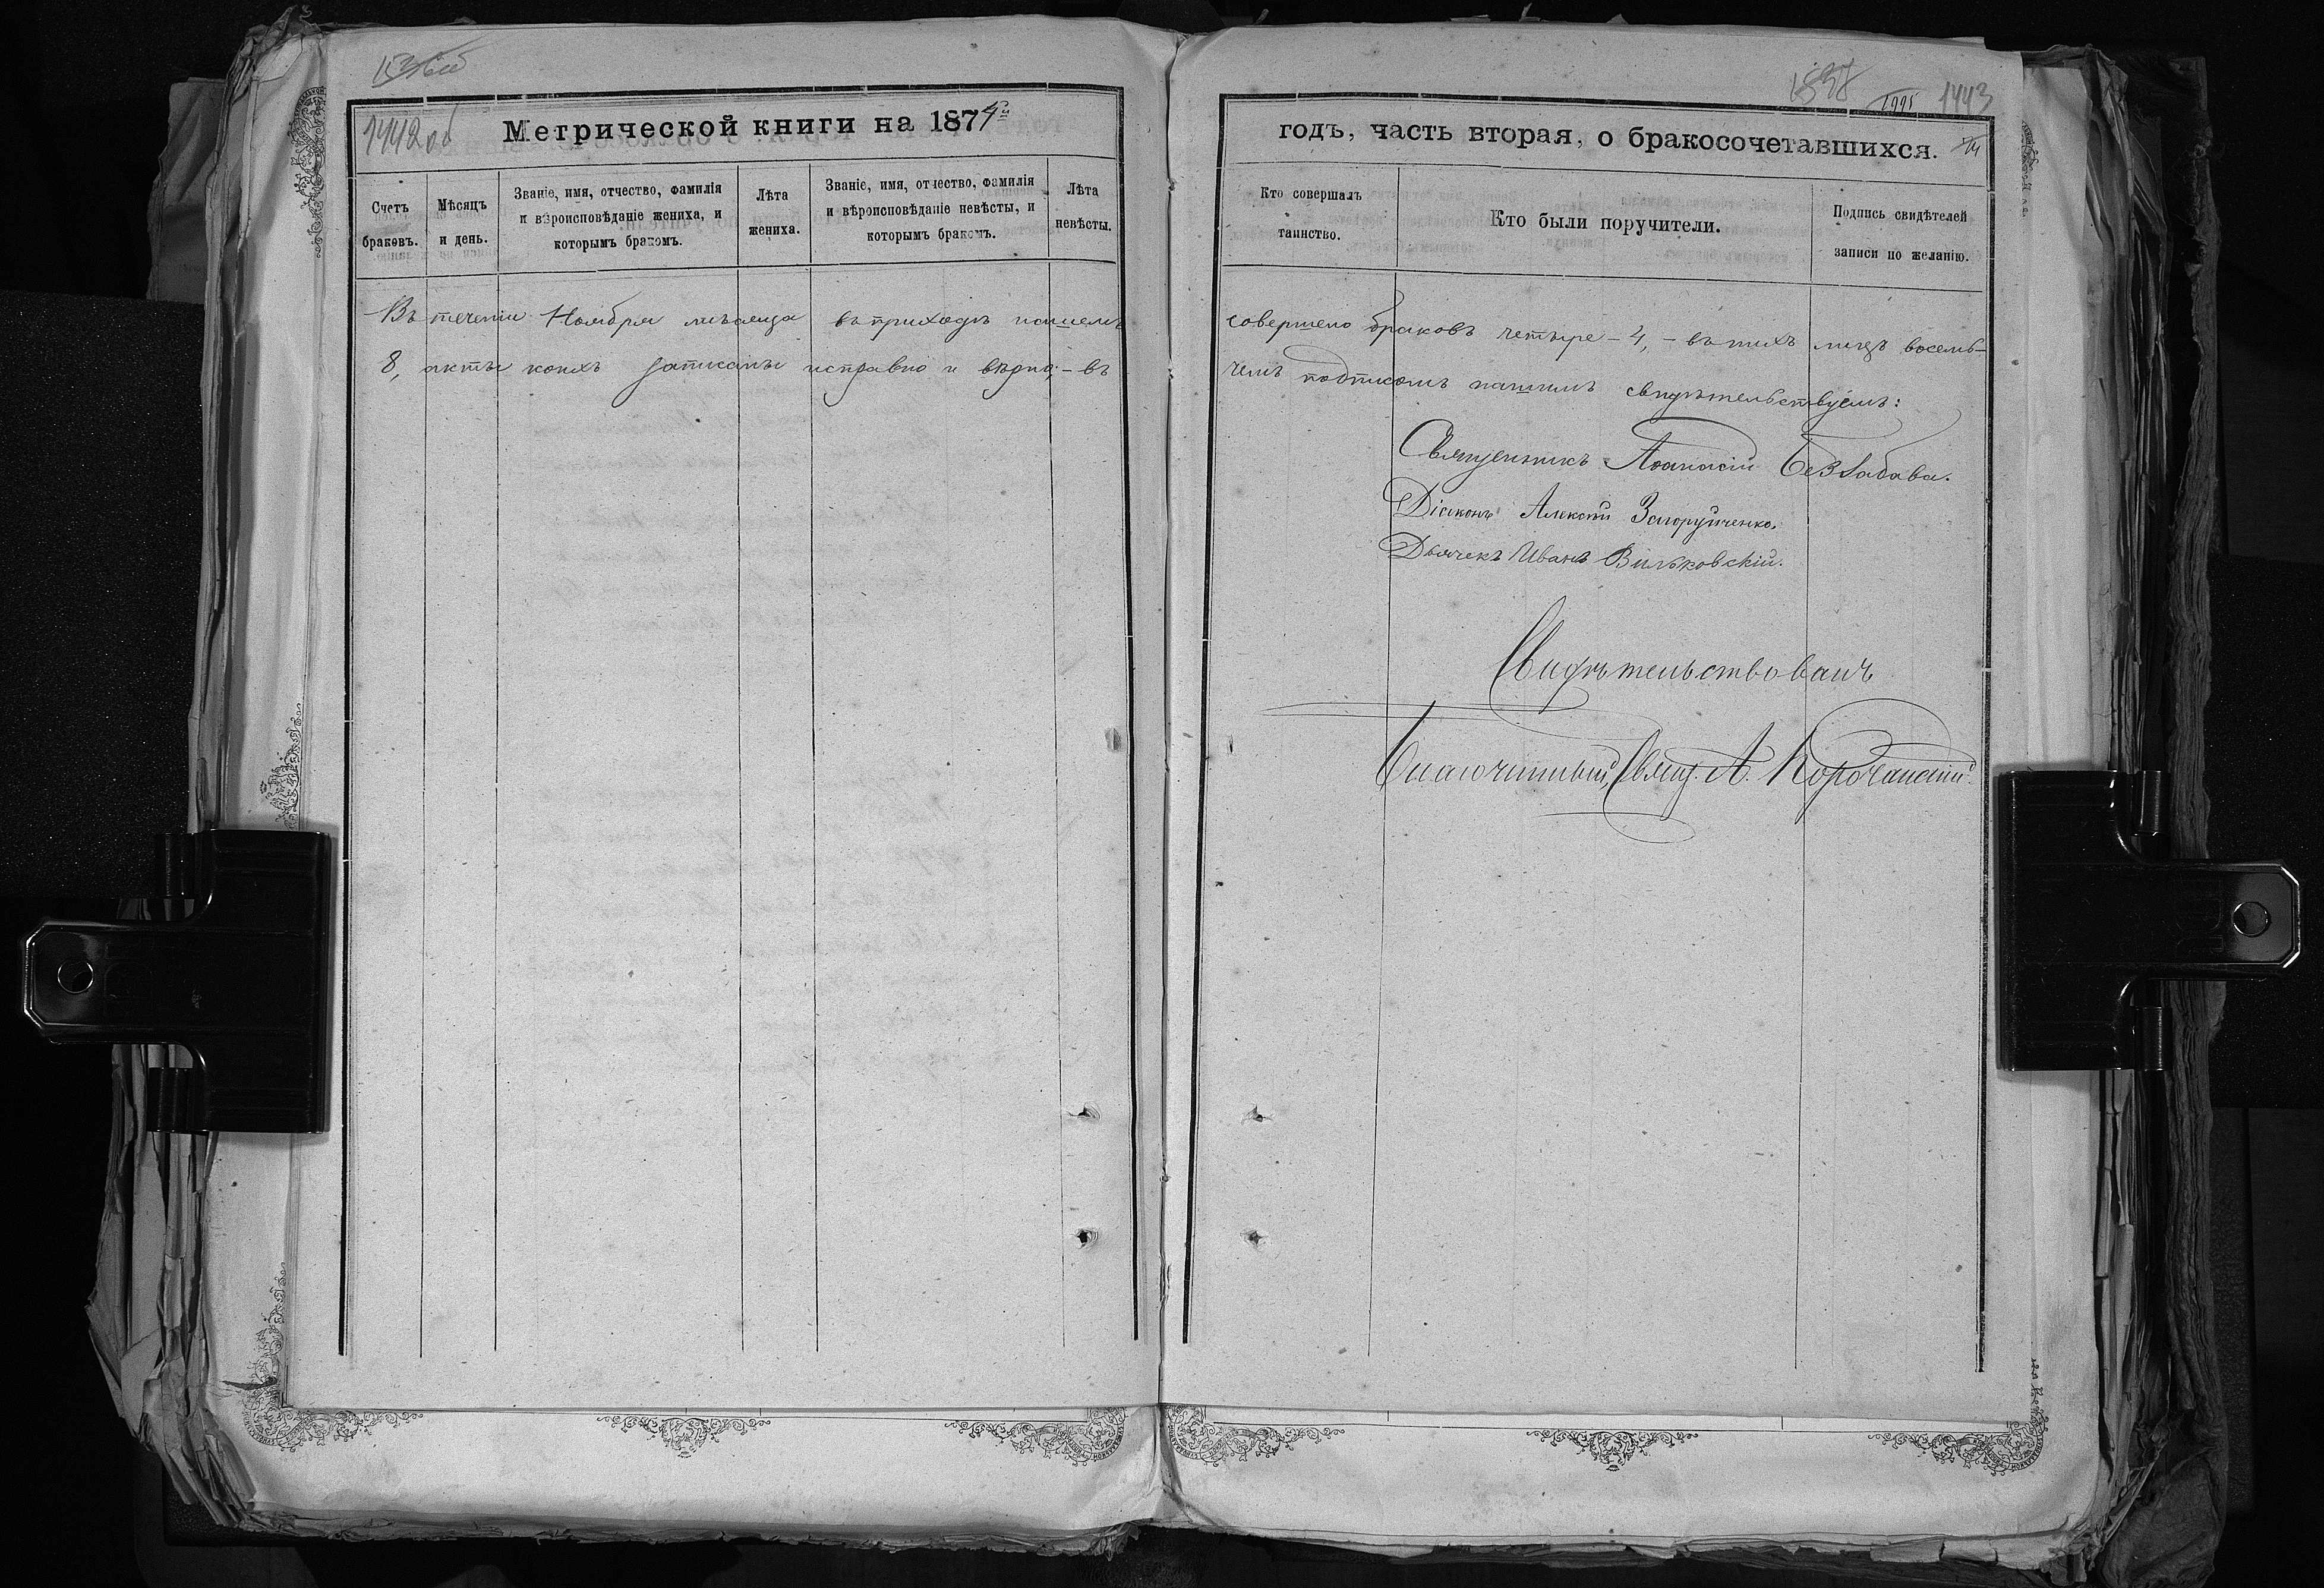 1442 об
Метрической книги на 1874й
Счетъ браковъ.
Мѣсяцъ и день.
Званіе, имя, отчество, фамилія и вѣроисповѣданіе жениха, и которымъ бракомъ.
Лѣта жениха.
Званіе, имя, отчество, фамилія и вѣроисповѣданіе невѣсты, и которымъ бракомъ.
Лѣта невѣсты.
Въ теченіи Ноября мѣсяца въ приходѣ нашемъ
8, акты коихъ записаны исправно и вѣрно; – въ
1443
годъ, часть вторая, о бракосочетавшихся.
Кто совершалъ таинство.
Кто были поручители.
Подпись свидѣтелей записи по желанію.
совершено браковъ четыре – 4, – въ нихъ лицъ восемь –
чемъ подписомъ нашимъ свидѣтельствуемъ:
Священникъ Аѳанасій Беззабава.
Діаконъ Алексѣй
Дьячекъ Иванъ Вильковскій.
Свидѣтельствовалъ
Благочинный, Свящ. А. Корочанскій